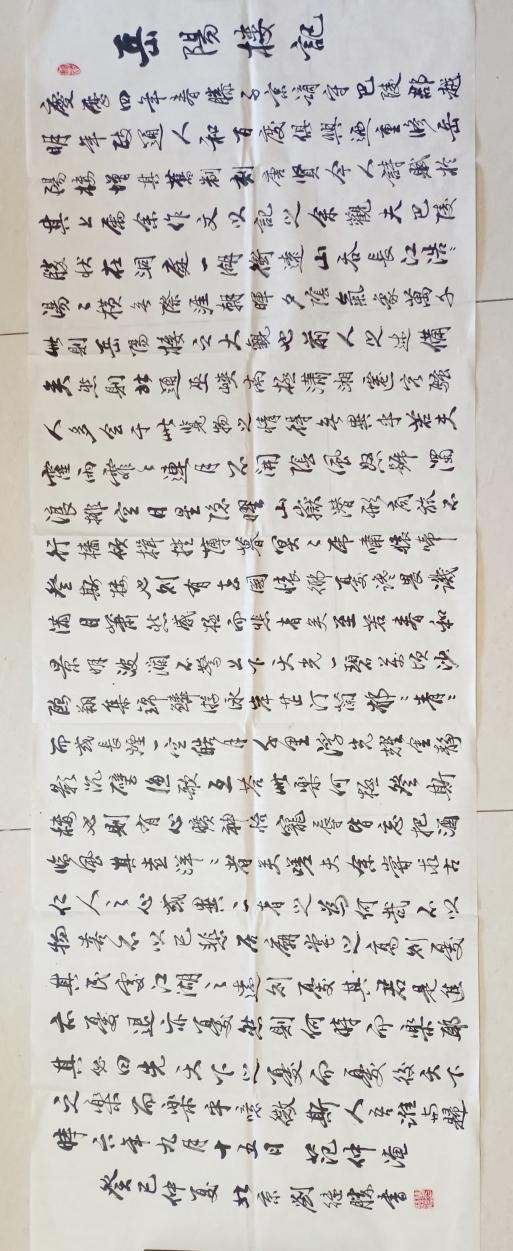 岳陽樓記
慶歷四年春滕子京謫守巴陵郡越
明年政通人和百廢俱興迺重修岳
陽樓增其舊制刻唐賢今人詩賦於
其上屬余作文以記之余觀夫巴陵
勝狀在洞庭一湖銜遠山吞長江浩〻
湯〻橫無際涯朝暉夕陰氣象萬千
此則岳陽樓之大觀也前人之述備
矣然則北通巫峽南極瀟湘遷客騷
人多会于此覽物之情得無異乎若夫
霪雨霏〻連月不開陰風怒號濁
浪排空日星隱曜山嶽潛形商旅不
行檣傾楫摧薄暮冥〻虎嘯猿啼
登斯樓也則有去國懷鄉憂讒畏譏
滿目蕭然感極而悲者矣至若春和
景明波瀾不驚上下天光一碧萬頃沙
鷗翔集錦鱗游泳岸芷汀蘭郁〻青〻
而或長煙一空皓月千里浮光耀金靜
影沉璧漁歌互答此樂何極登斯
樓也則有心曠神怡寵辱皆忘把酒
臨風其喜洋〻者矣嗟夫余嘗求古
仁人之心或異二者之為何哉不以
物喜不以己悲居廟堂之高則憂
其民處江湖之遠則憂其君是進
亦憂退亦憂然則何時而樂耶
其必曰先天下之憂而憂後天下
之樂而樂乎噫微斯人吾誰與歸
時六年九月十五日 范仲淹
癸巳仲夏北京劉勝書